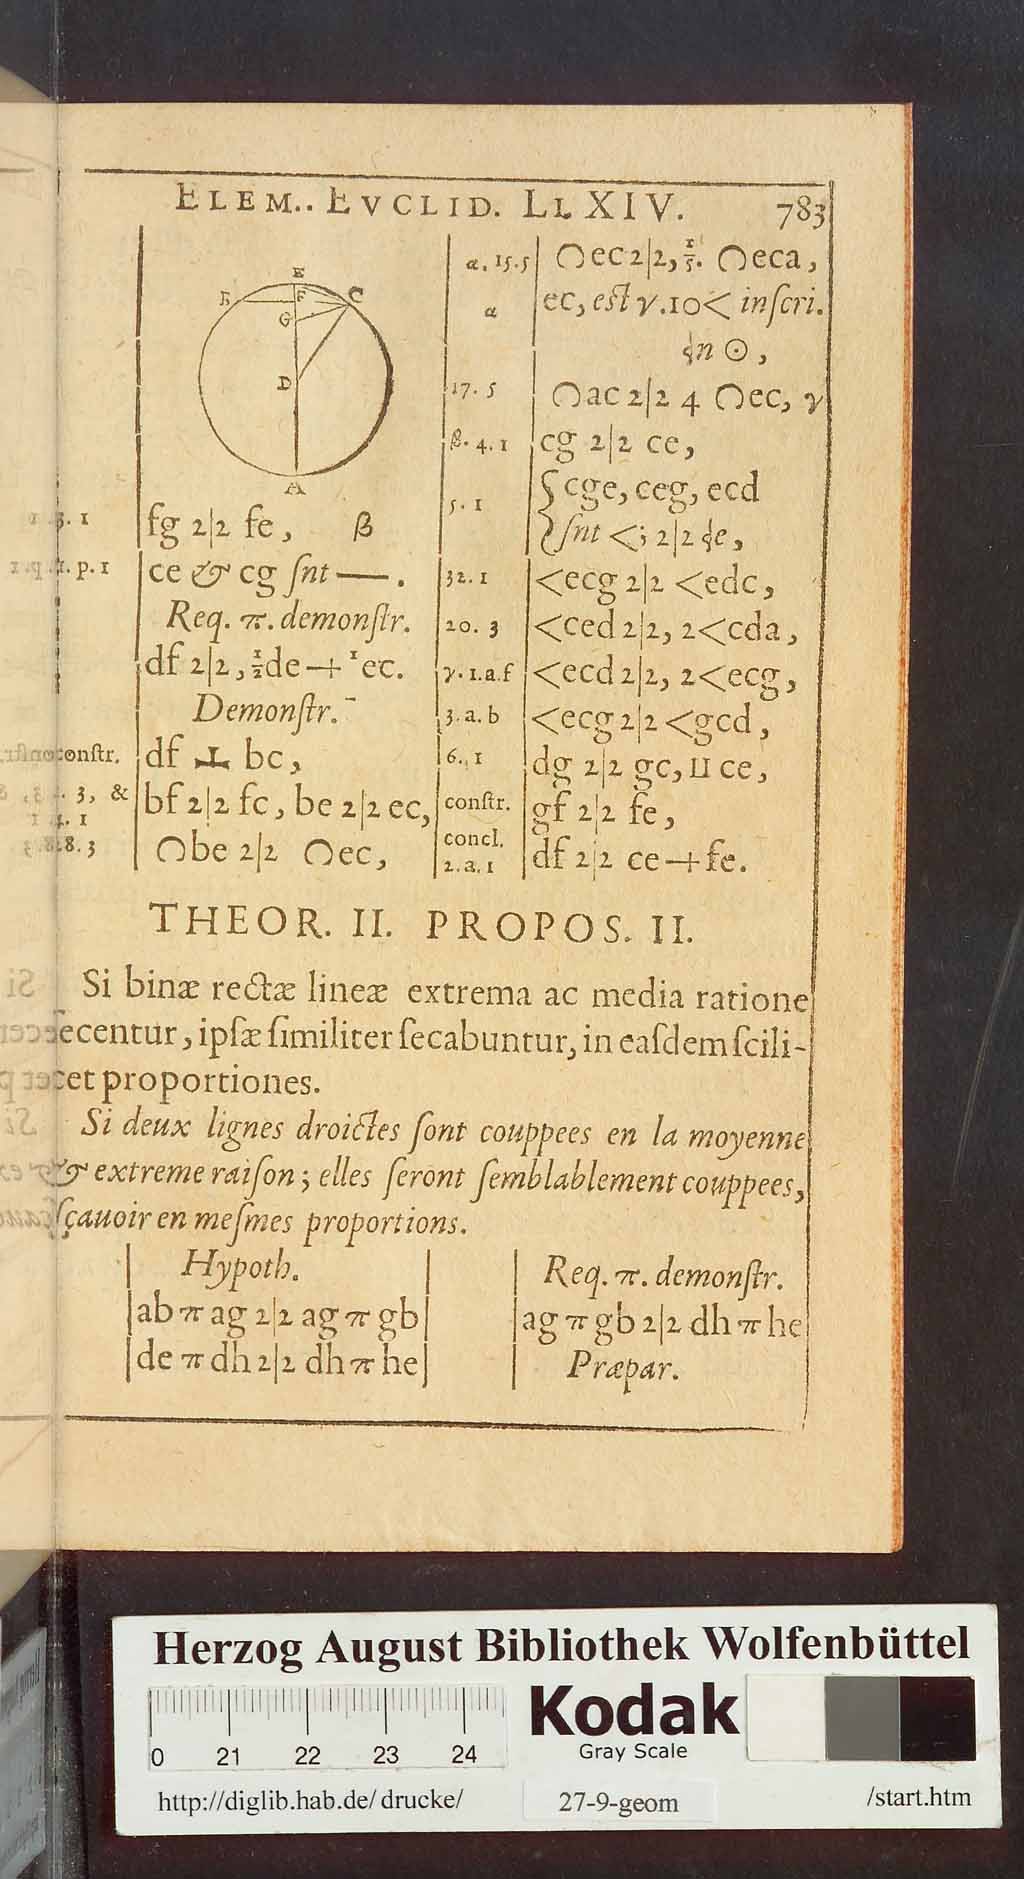 ELEM.. EVCLID. LI. XIV. 783
E
B F C
G
D
A
1.3.1 fg 2|2 fe, β
1.p.1 ce & cg ſnt —.
Req. π. demonſtr.
df 2|2, ½de + ½ec.
Demonſtr.
conſtr. df ⊥ bc,
3.3, & 4.1 bf 2|2 fc, be 2|2 ec,
28.3 ◠be 2|2 ◠ec,
α. 15.5 ◠ec 2|2, ⅕. ◠eca,
α ec, eſt γ.10< inſcri.
in ⊙,
17. 5 ◠ac 2|2 4 ◠ec, γ
β. 4. 1 cg 2|2 ce,
5. 1 {cge, ceg, ecd
ſnt <; 2|2 de,
32. 1 <ecg 2|2 <edc,
20. 3 <ced 2|2, 2<cda,
γ. 1.a.f <ecd 2|2, 2<ecg,
3. a. b <ecg 2|2 <gcd,
6. 1 dg 2|2 gc, ⊔ ce,
conſtr. gf 2|2 fe,
concl.
2. a. 1 df 2|2 ce + fe.
THEOR. II. PROPOS. II.
Si binæ rectæ lineæ extrema ac media ratione
ſecentur, ipſæ ſimiliter ſecabuntur, in eaſdem ſcili-
cet proportiones.
Si deux lignes droictes ſont couppees en la moyenne
& extreme raiſon; elles ſeront ſemblablement couppees,
ſçauoir en meſmes proportions.
Hypoth.
ab π ag 2|2 ag π gb
de π dh 2|2 dh π he
Req. π. demonſtr.
ag π gb 2|2 dh π he
Præpar.
Herzog August Bibliothek Wolfenbüttel
0 21 22 23 24
Kodak
Gray Scale
http://diglib.hab.de/drucke/ 27-9-geom /start.htm